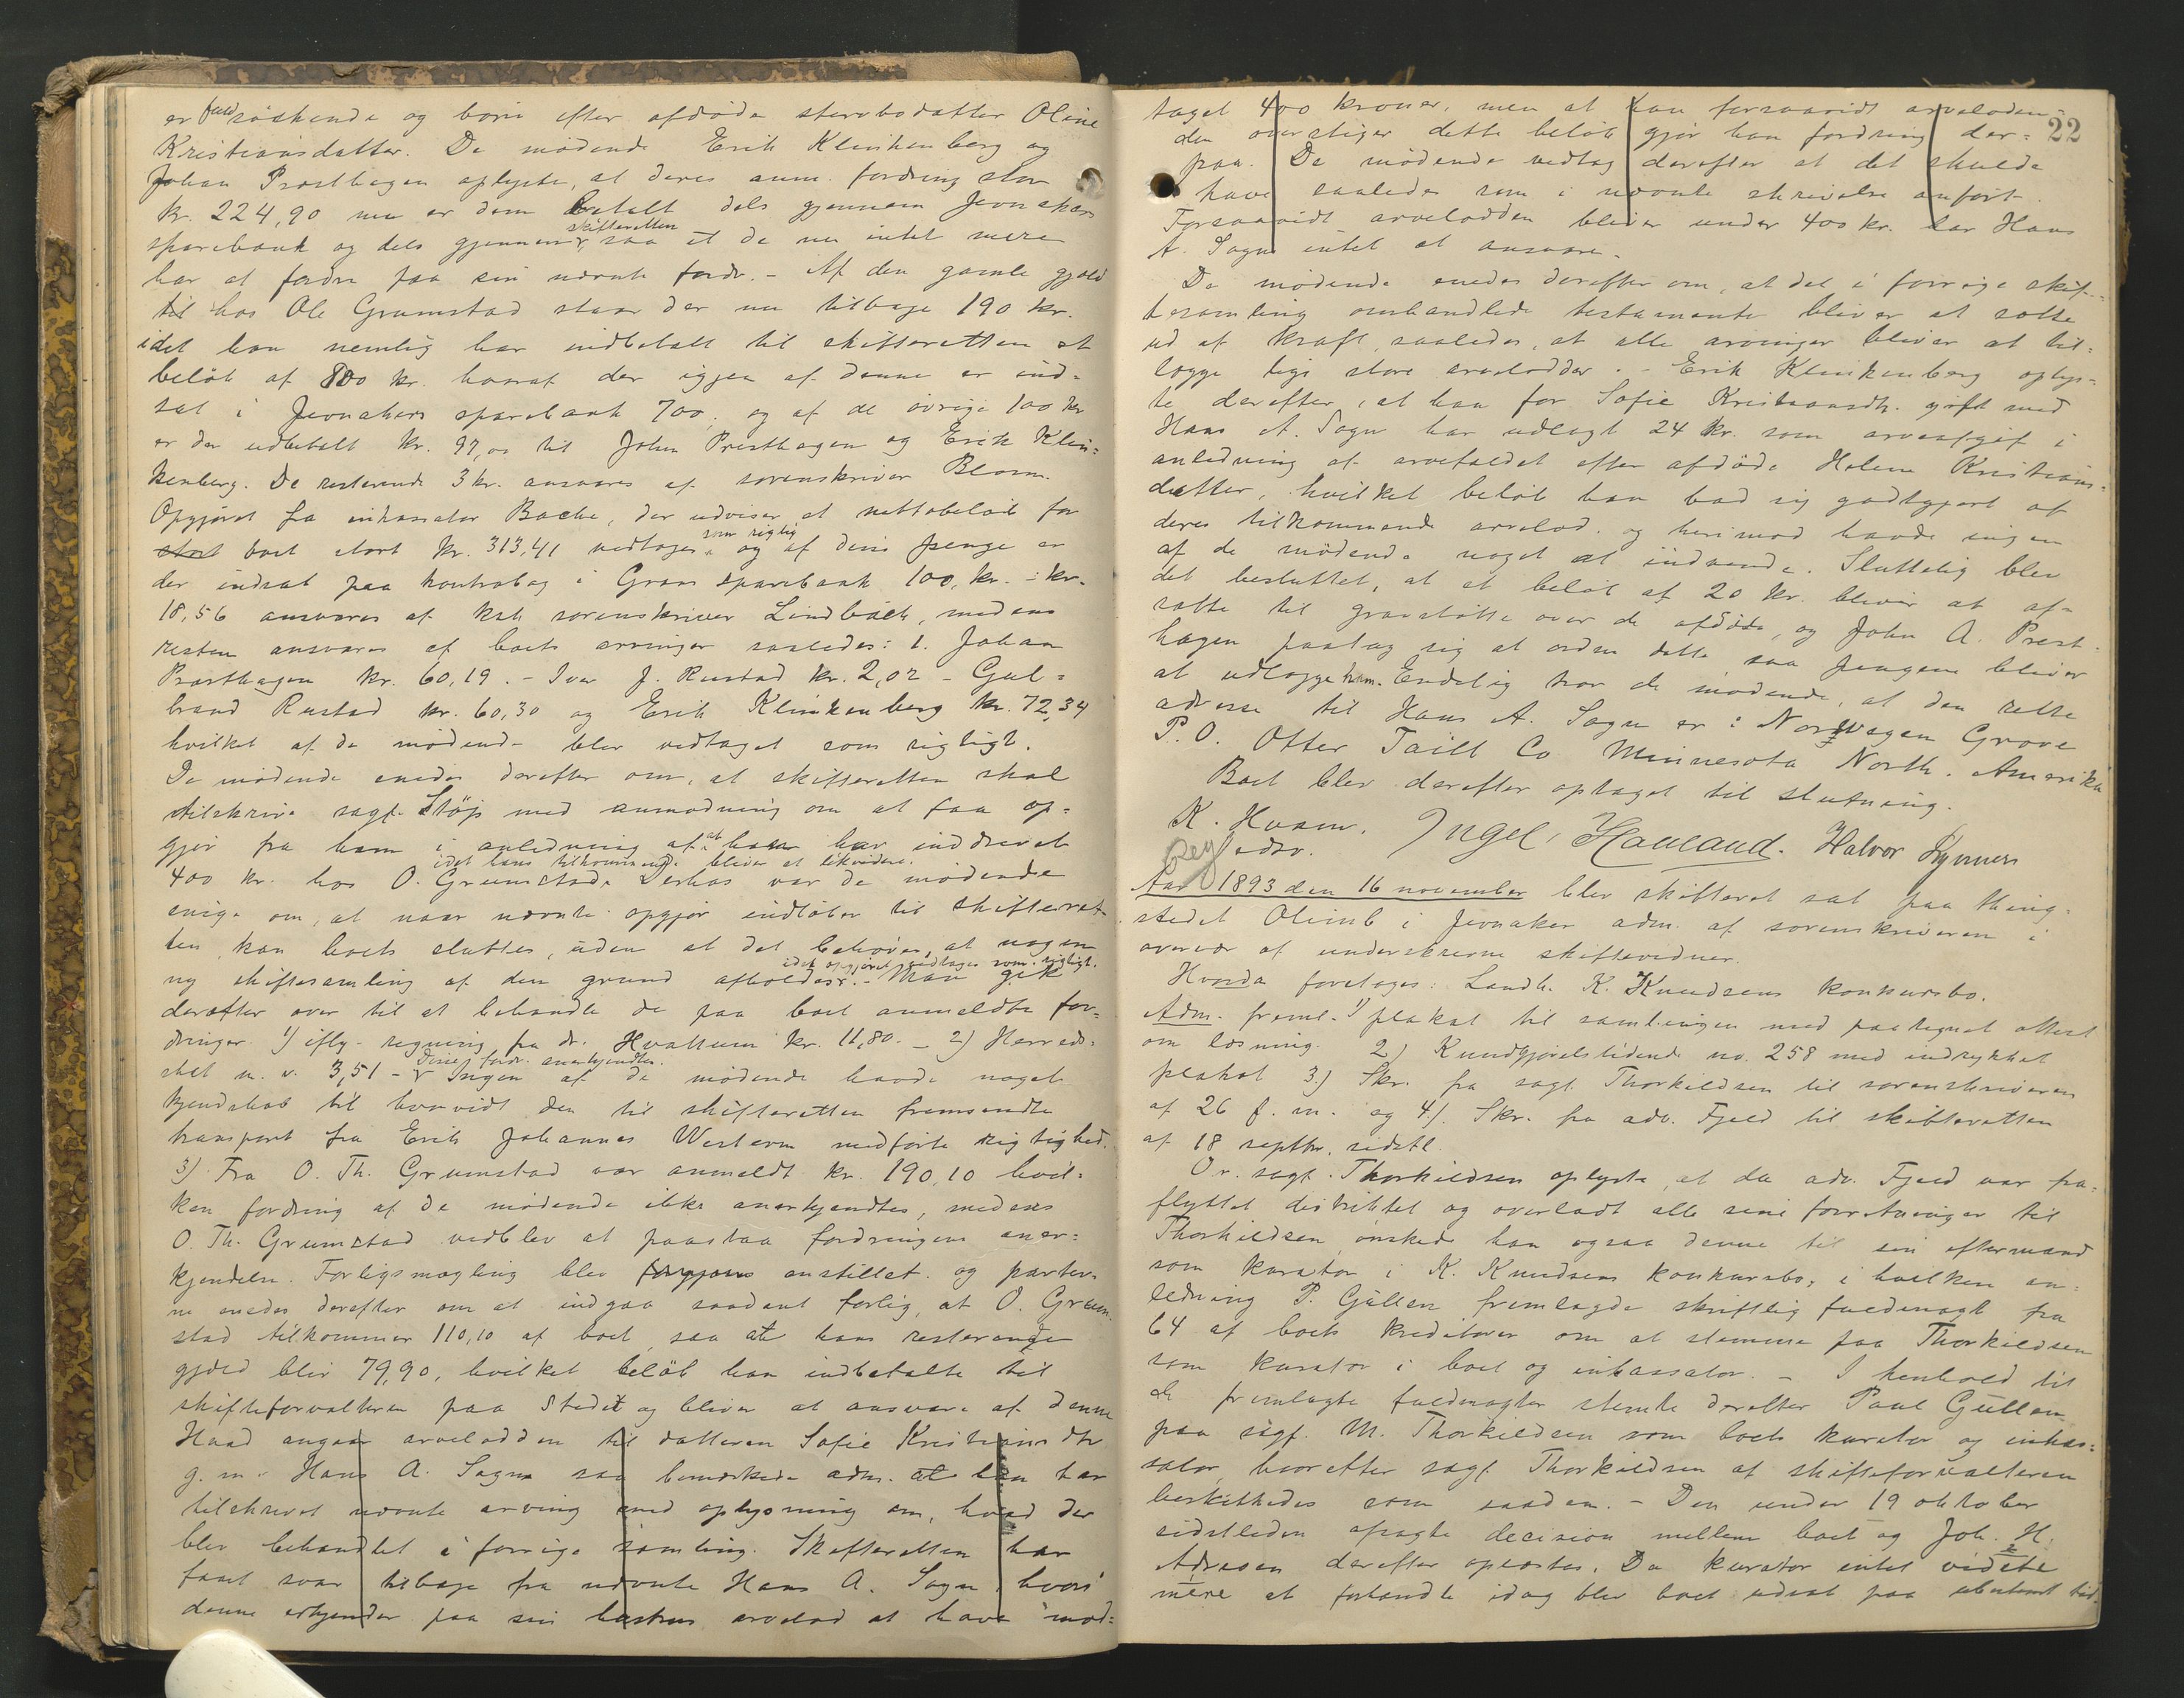 er fuldsöskende og börn efter afdöde stervbodatter Oline
Kristiansdatter. De mödende Erik Klinkenberg og
Johan Prästhagen oplyste, at deres anm. fordring stor
kr. 224,90 nu er dem betalt dels gjennem Jevnakers
sparebank og dels gjennem skifteretten saa at de nu intet mere
har at fordre paa sin nævnte fordr. - Af den gamle gjæld
til hos Ole Grumstad staar der nu tilbage 190 kr.
idet han nemlig har indbetalt til skifteretten et
belöb af 800 kr. hvoraf der igjen af denne er ind=
sat i Jevnakers sparebank 700, og af de övrige 100 kr
er der udbetalt kr. 97,00 til Johan Præsthagen og Erik Klin=
kenberg. De resterende 3 kr. ansvares af sorenskriver Blom.
Opgjöret fra inkassator Bache, der udviser et nettobelöb for
stort boet stort kr. 313,41 vedtoges som rigtig og af disse penge er
der indsat paa kontrabog i Grans sparebank 100, kr. : kr.
18,56 ansvares af kst. sorenskriver Lindbäck, medens
resten ansvares af boets arvinger saaledes: 1. Johan
Præsthagen kr. 60,19. - Iver J. Rustad kr. 2,02 - Gul=
brand Rustad kr. 60,30 og Erik Klinkenberg kr. 72,34
hvilket af de mödende blev vedtaget som rigtigt.
De mödende enedes derefter om, at skifteretten skal
tilskrive sagf. Stöp med anmodning om at faa op=
gjör fra ham i anledning af at han har inddrevet
idet hans tilkommende bliver at likvidere.
400 kr. hos O. Grumstad. Derhos var de mödende
enige om, at naar nævnte opgjör indlöber til skifteret-
ten, kan boets sluttes, uden at det behöves, at nogen
idet opgjöret vedtages som rigtigt.
ny skiftesamling af den grund afholdes. - Man gik
derefter over til at behandle de paa boet anmeldte for=
dringer 1) ifly. regning fra dr. Hvattum kr. 11,80. - 2) Herreds=
Disse fordr. anerkjendtes.
 n. v. 3,51 - Ingen af de mödende havde noget
kjendskab til hvorvidt den til skifteretten fremsendte
transport fra Erik Johannes Western medförte rigtighed.
3) Fra O. Th. Grumstad var anmeldt kr. 190,10 hvil=
ken fordring af de mödende ikke anerkjendtes, medens
O. Th. Grumstad vedblev at paastaa fordringens aner=
kjendelse. Forligsmægling blev forgjæves anstillet. og parter-
ne enedes derefter om at indgaa saadant forlig, at O. Grum
stad tilkommer 110,10 af boet, saa at hans resterende
gjæld blir 79,90, hvilket belöb han indbetalte til
skifteforvalteren paa stedet og bliver at ansvare af denne
Hvad angaar arvelodden til datteren Sofie Kristiansdtr
g. m. Hans A. Sagn saa bemærkede adm. at han har
tilskrevet nævnte arving med oplysning om, hvad der
blev behandlet i forrige samling. Skifteretten har
faaet svar tilbage fra nævnte Hans A. Sogn, hvori
denne erkjender paa sin hustrus arvelod at have mod=
22
taget 400 kroner, men at han forsaavidt arvelodden-
den overstiger dette belöb gjör han fordring der=
paa. De mödende vedtog derefter at det skulde
have saaledes som i nævnte skrivelse anfört.
Forsaavidt arvelodden bliver under 400 kr. har Hans
A. Sogn intet at ansvare.
De mödende enedes derefter om, at det i forrige skif-
tesamling omhandlede testamente bliver at sætte
ud af kraft, saaledes, at alle arvinger bliver at til=
lægge lige store arvelodder. - Erik Klinkenberg oplys=
te derefter, at han for Sofie Kristiansdtr. gift med
Hans A. Sogn har udlagt 24 kr. som arveafgift i
anledning af arvefaldet efter afdöde Helene Kristians=
datter, hvilket belöb han bad sig godtgjort af
deres tilkommende arvelod. og herimod havde ingen
af de mödende noget at indvende. Sluttelig blev
det besluttet, at et belöb af 20 kr. bliver at af=
sætte til gravstötte over de afdöde, og John A. Præst-
hagen paatog sig at ordne dette saa pengene bliver
at udlægge ham. Endelig tror de mödende, at den rette
adresse til Hans A. Sogn er: Norwegen Grove
P.O. Otter Taill Co Minnesota North. Amerika
Boet blev derefter optaget til slutning.
K. Hvam. Ingel. Hamand. Halvor Rynners
edsv.
Aar 1893 den 16 november blev skifteret sat paa thing-
stedet Olimb i Jevnaker adm. af sorenskriveren i
overvær af underskrevne skiftevidner.
Hvorda foretoges: Landh. K. Knudsens konkursbo.
Adm. freml. 1) plakat til samlingen med paategnet attest
om læsning. 2) Kundgjörelstidende no. 258 med indrykket
plakat 3.) Skr. fra sagf. Thorkildsen til sorenskriveren
af 26 f. m. og 4). Skr. fra adv. Fjeld til skifteretten
af 18 septbr. sidstl.
Or. sagf. Thorkildsen oplyste, at da adv. Fjeld var fra=
flyttet distriktet og overladt alle sine forretninger til
Thorkildsen, önskede han ogsaa denne til sin eftermand
som kurator i K. Knudsens konkursbo, i hvilken an=
ledning P. Gullen fremlagde skriftlig fuldmagt fra
64 af boets kreditorer om at stemme paa Thorkildsen
som kurator i boet og inkassator. - I henhold til
de fremlagte fuldmagter stemte derefter Paul Gullen
paa sagf. M. Thorkildsen som boets kurator og inkas=
sator, hvorefter sagf. Thorkildsen af skifteforvalteren
beskikkedes som saadan. - Den under 19 oktober
sidstleden afsagte decision mellem boet og Joh. H.
 derefter oplæstes. Da kurator intet vidste
mere at forhandle idag blev boet udsat paa ubestemt tid.